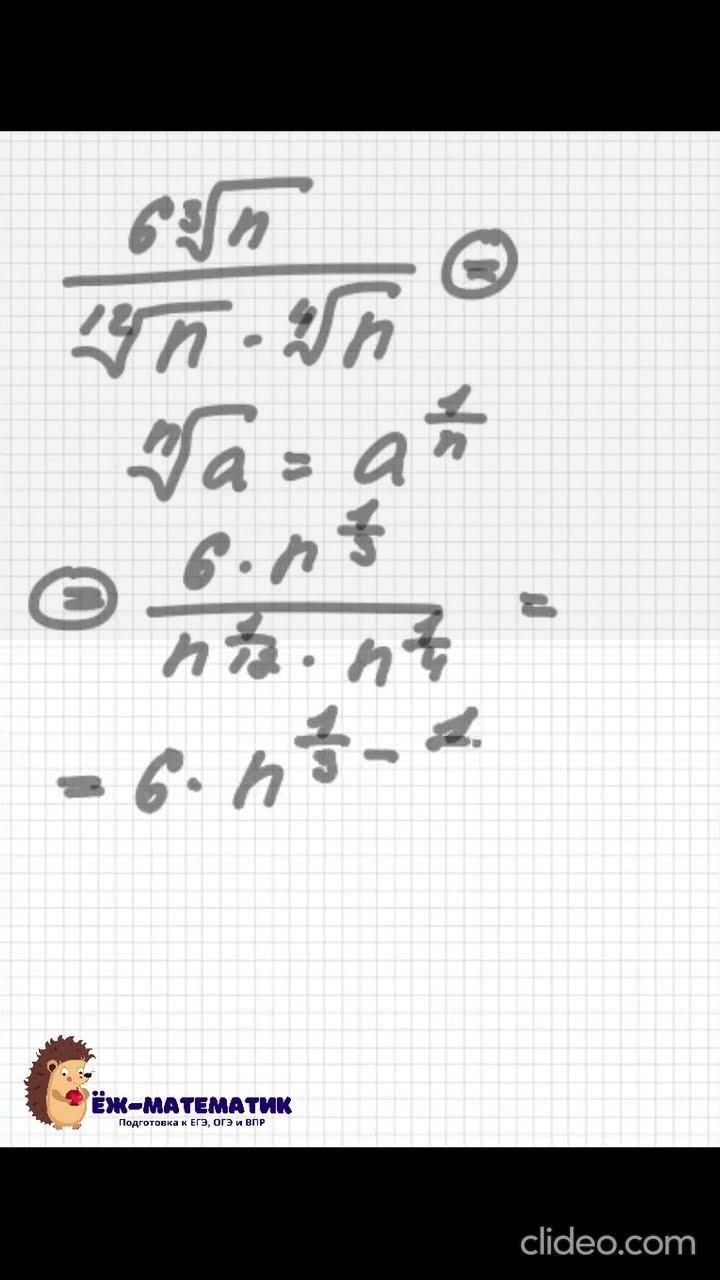 6∛n / (¹²√n · ⁴√n) =
ⁿ√a = a^(1/n)
= (6 · n^(1/3)) / (n^(1/12) · n^(1/4)) =
= 6 · n^(1/3 - 1
ЁЖ-МАТЕМАТИК
Подготовка к ЕГЭ, ОГЭ и ВПР
clideo.com